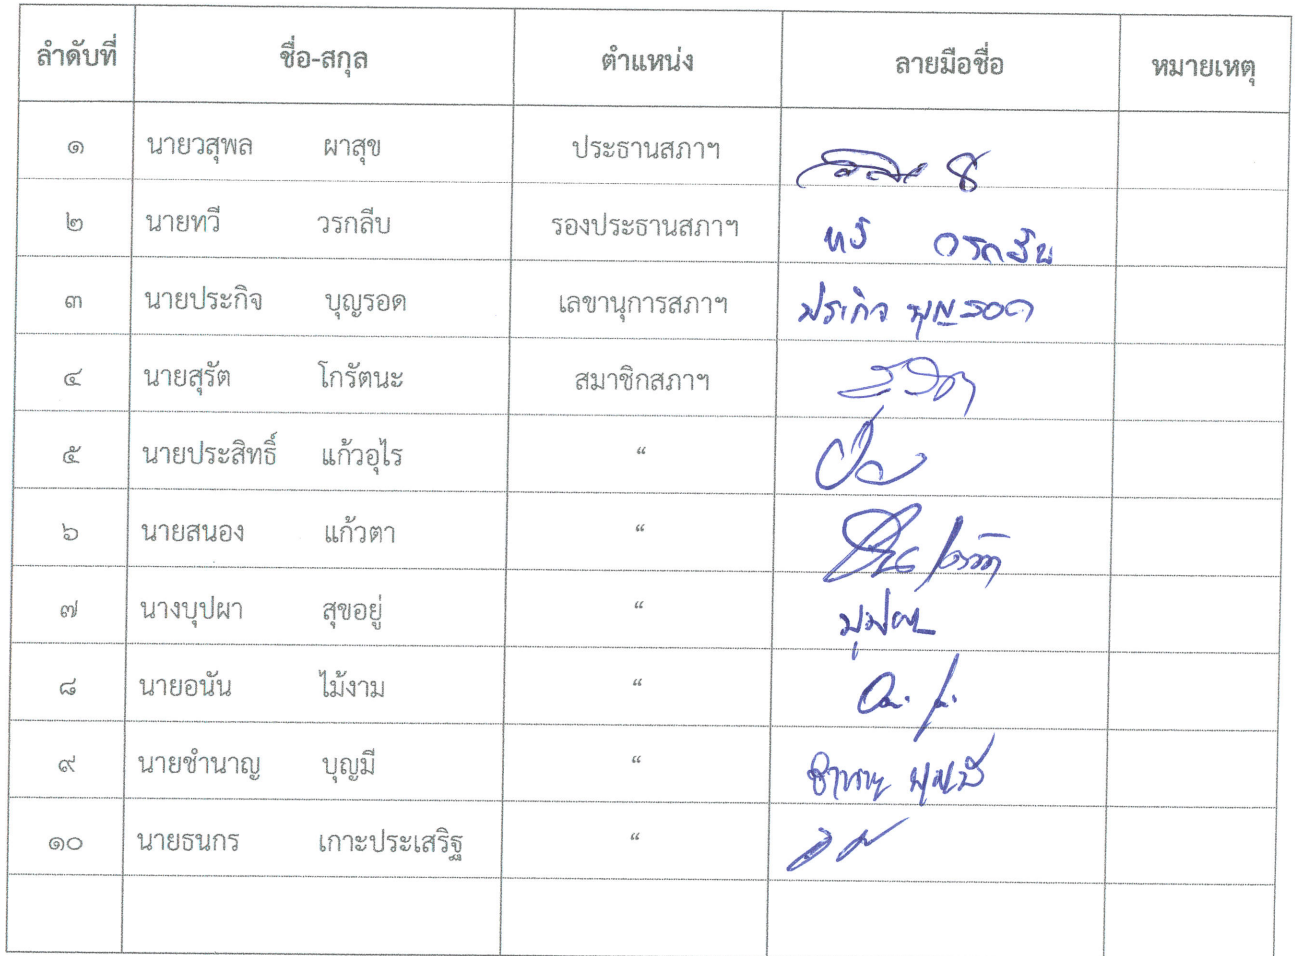 ลำดับที่ ชื่อ-สกุล ตำแหน่ง ลายมือชื่อ หมายเหตุ
๑ นายวสุพล ผาสุข ประธานสภาฯ
๒ นายทวี วรกลีบ รองประธานสภาฯ ทวี วรกลีบ
๓ นายประกิจ บุญรอด เลขานุการสภาฯ ประกิจ บุญรอด
๔ นายสุรัต โกรัตนะ สมาชิกสภาฯ
๕ นายประสิทธิ์ แก้วอุไร “
๖ นายสนอง แก้วตา “
๗ นางบุปผา สุขอยู่ “ บุปผา
๘ นายอนัน ไม้งาม “
๙ นายชำนาญ บุญมี “ ชำนาญ บุญมี
๑๐ นายธนกร เกาะประเสริฐ “